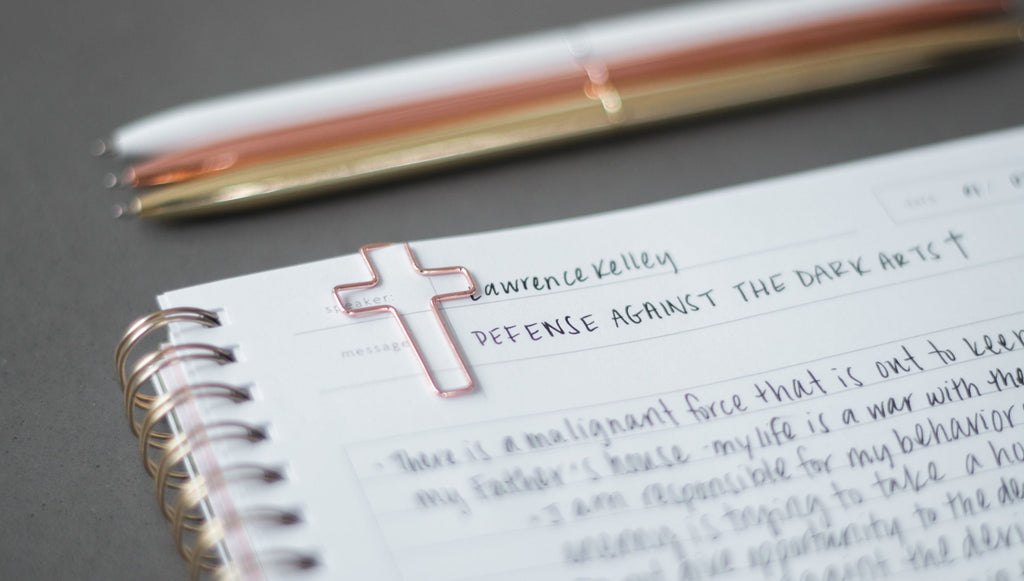 speaker: Lawrence Kelley
message DEFENSE AGAINST THE DARK ARTS †
· There is a malignant force that is out to keep
my Father's house - my life is a war with the
- I am responsible for my behavior
enemy is trying to take a
give opportunity to the
the devil